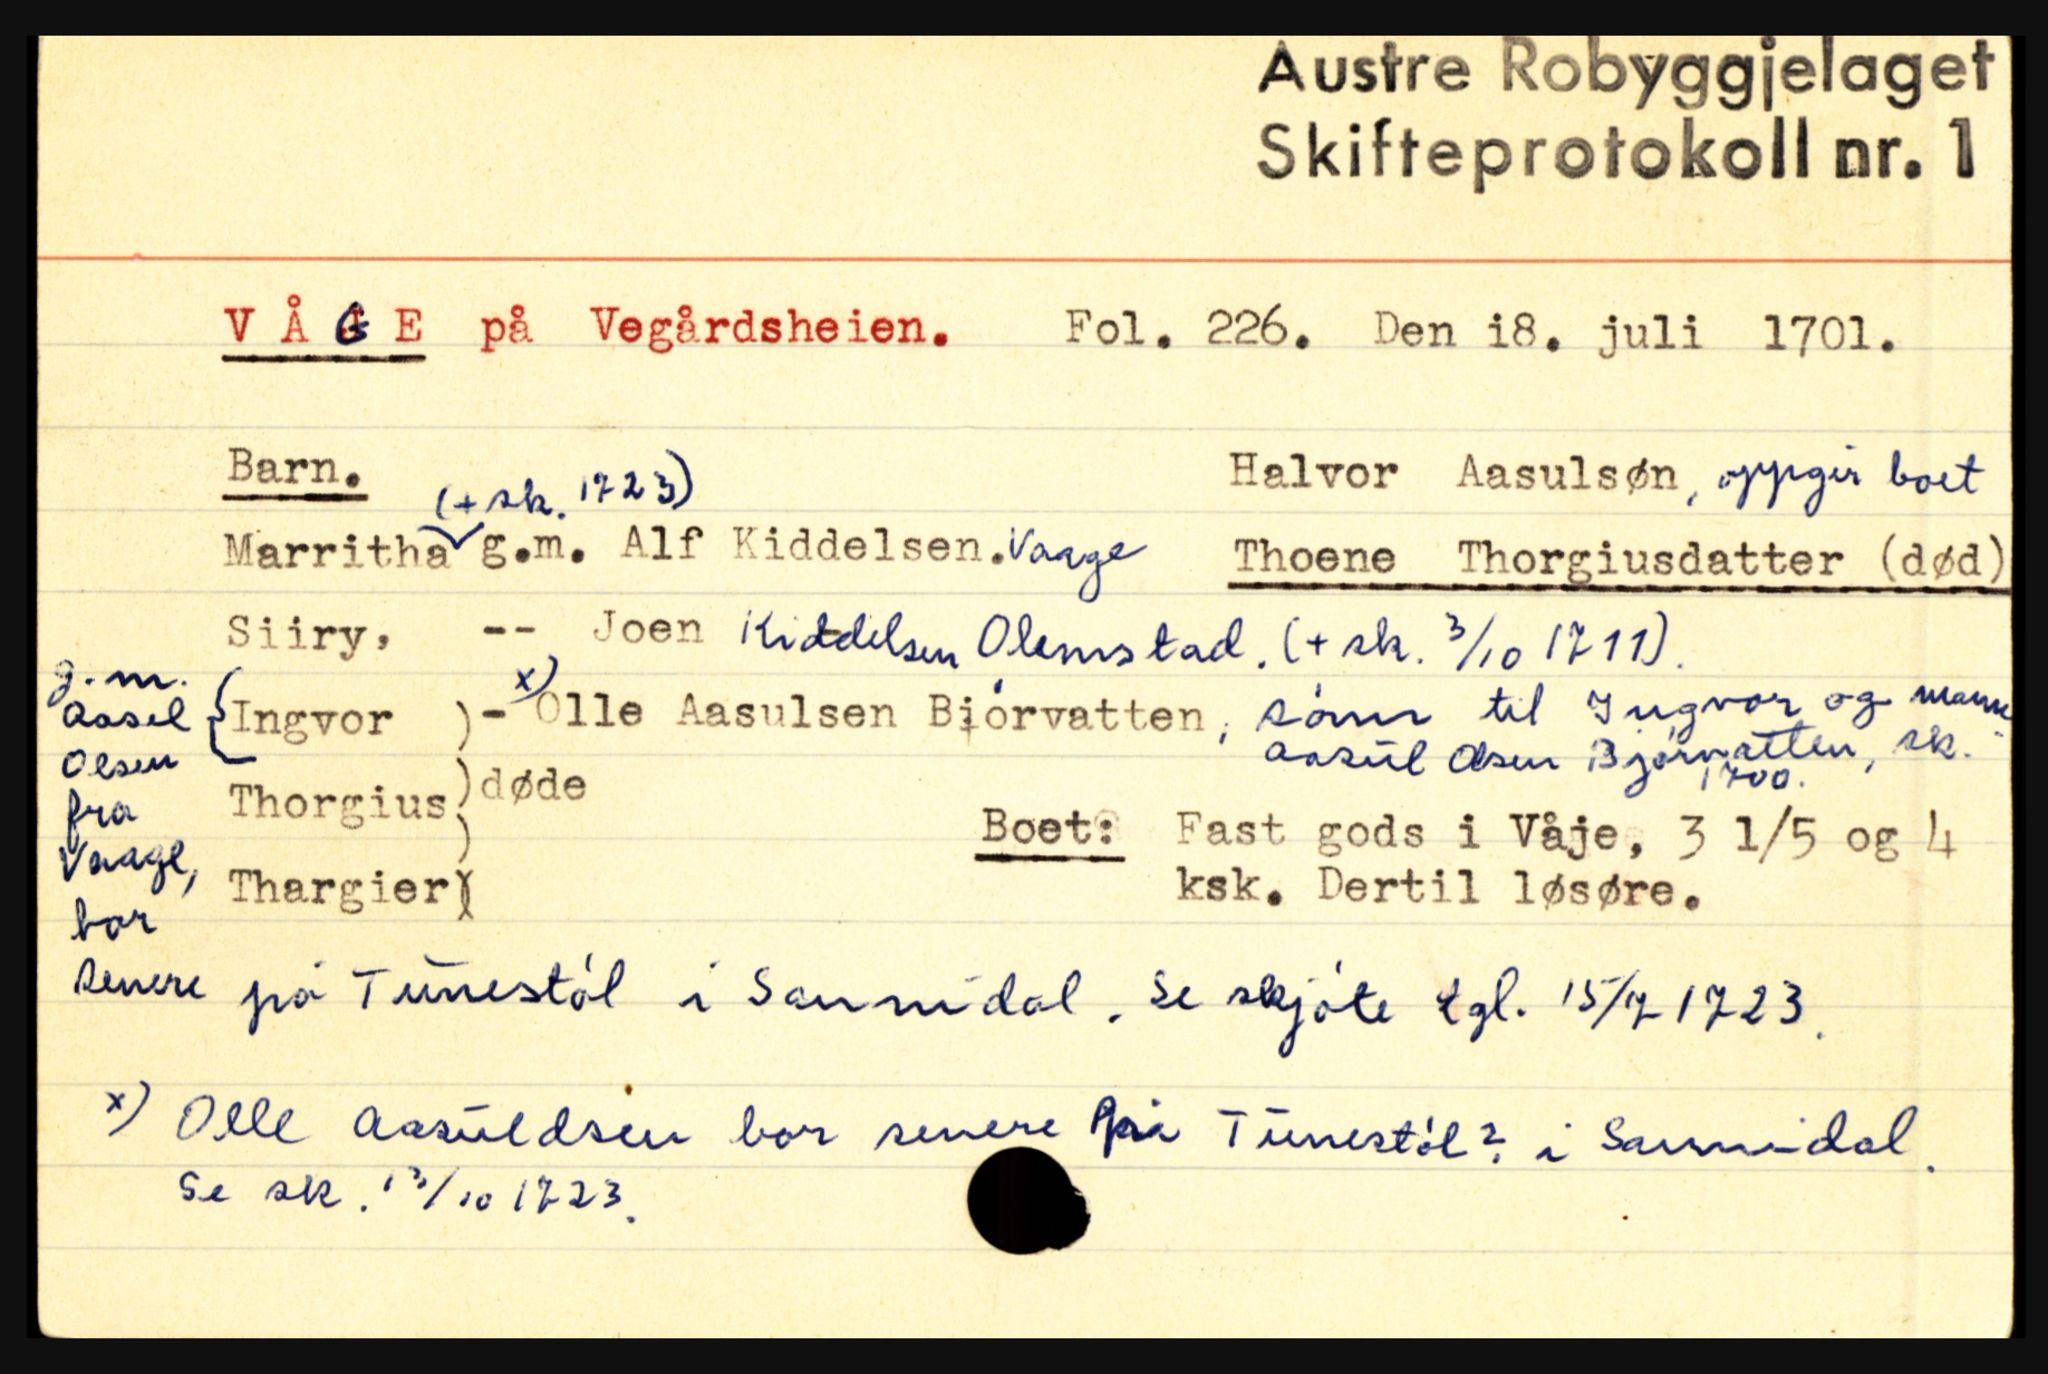 Austre Robyggjelaget
Skifteprotokoll nr. 1
VÅGE på Vegårdsheien. Fol. 226. Den i8. juli 1701.
Barn.
(+ sk. 1723)
Halvor Aasulsøn, oppgir boet
Marritha g.m. Alf Kiddelsen. Vaage
Thoene Thorgiusdatter (død)
Siiry, -- Joen Kiddelsen Olemstad. (+ sk. 3/10 1711).
g.m.
Aasel
Olsen
fra
Vaage,
bor
Ingvor ) - x) Olle Aasulsen Biórvatten, sónn til Ingvor og mann
Aasül Olsen Bjórvatten, sk.
1700.
Thorgius ) døde
Thargier )
Boet: Fast gods i Våje, 3 1/5 og 4
ksk. Dertil løsøre.
senere på Tünestól i Sannidal. Se skjóte tgl. 15/7 1723.
x) Olle Aasüldsen bor senere på Tünestól? i Sannidal.
Se sk. 13/10 1723.